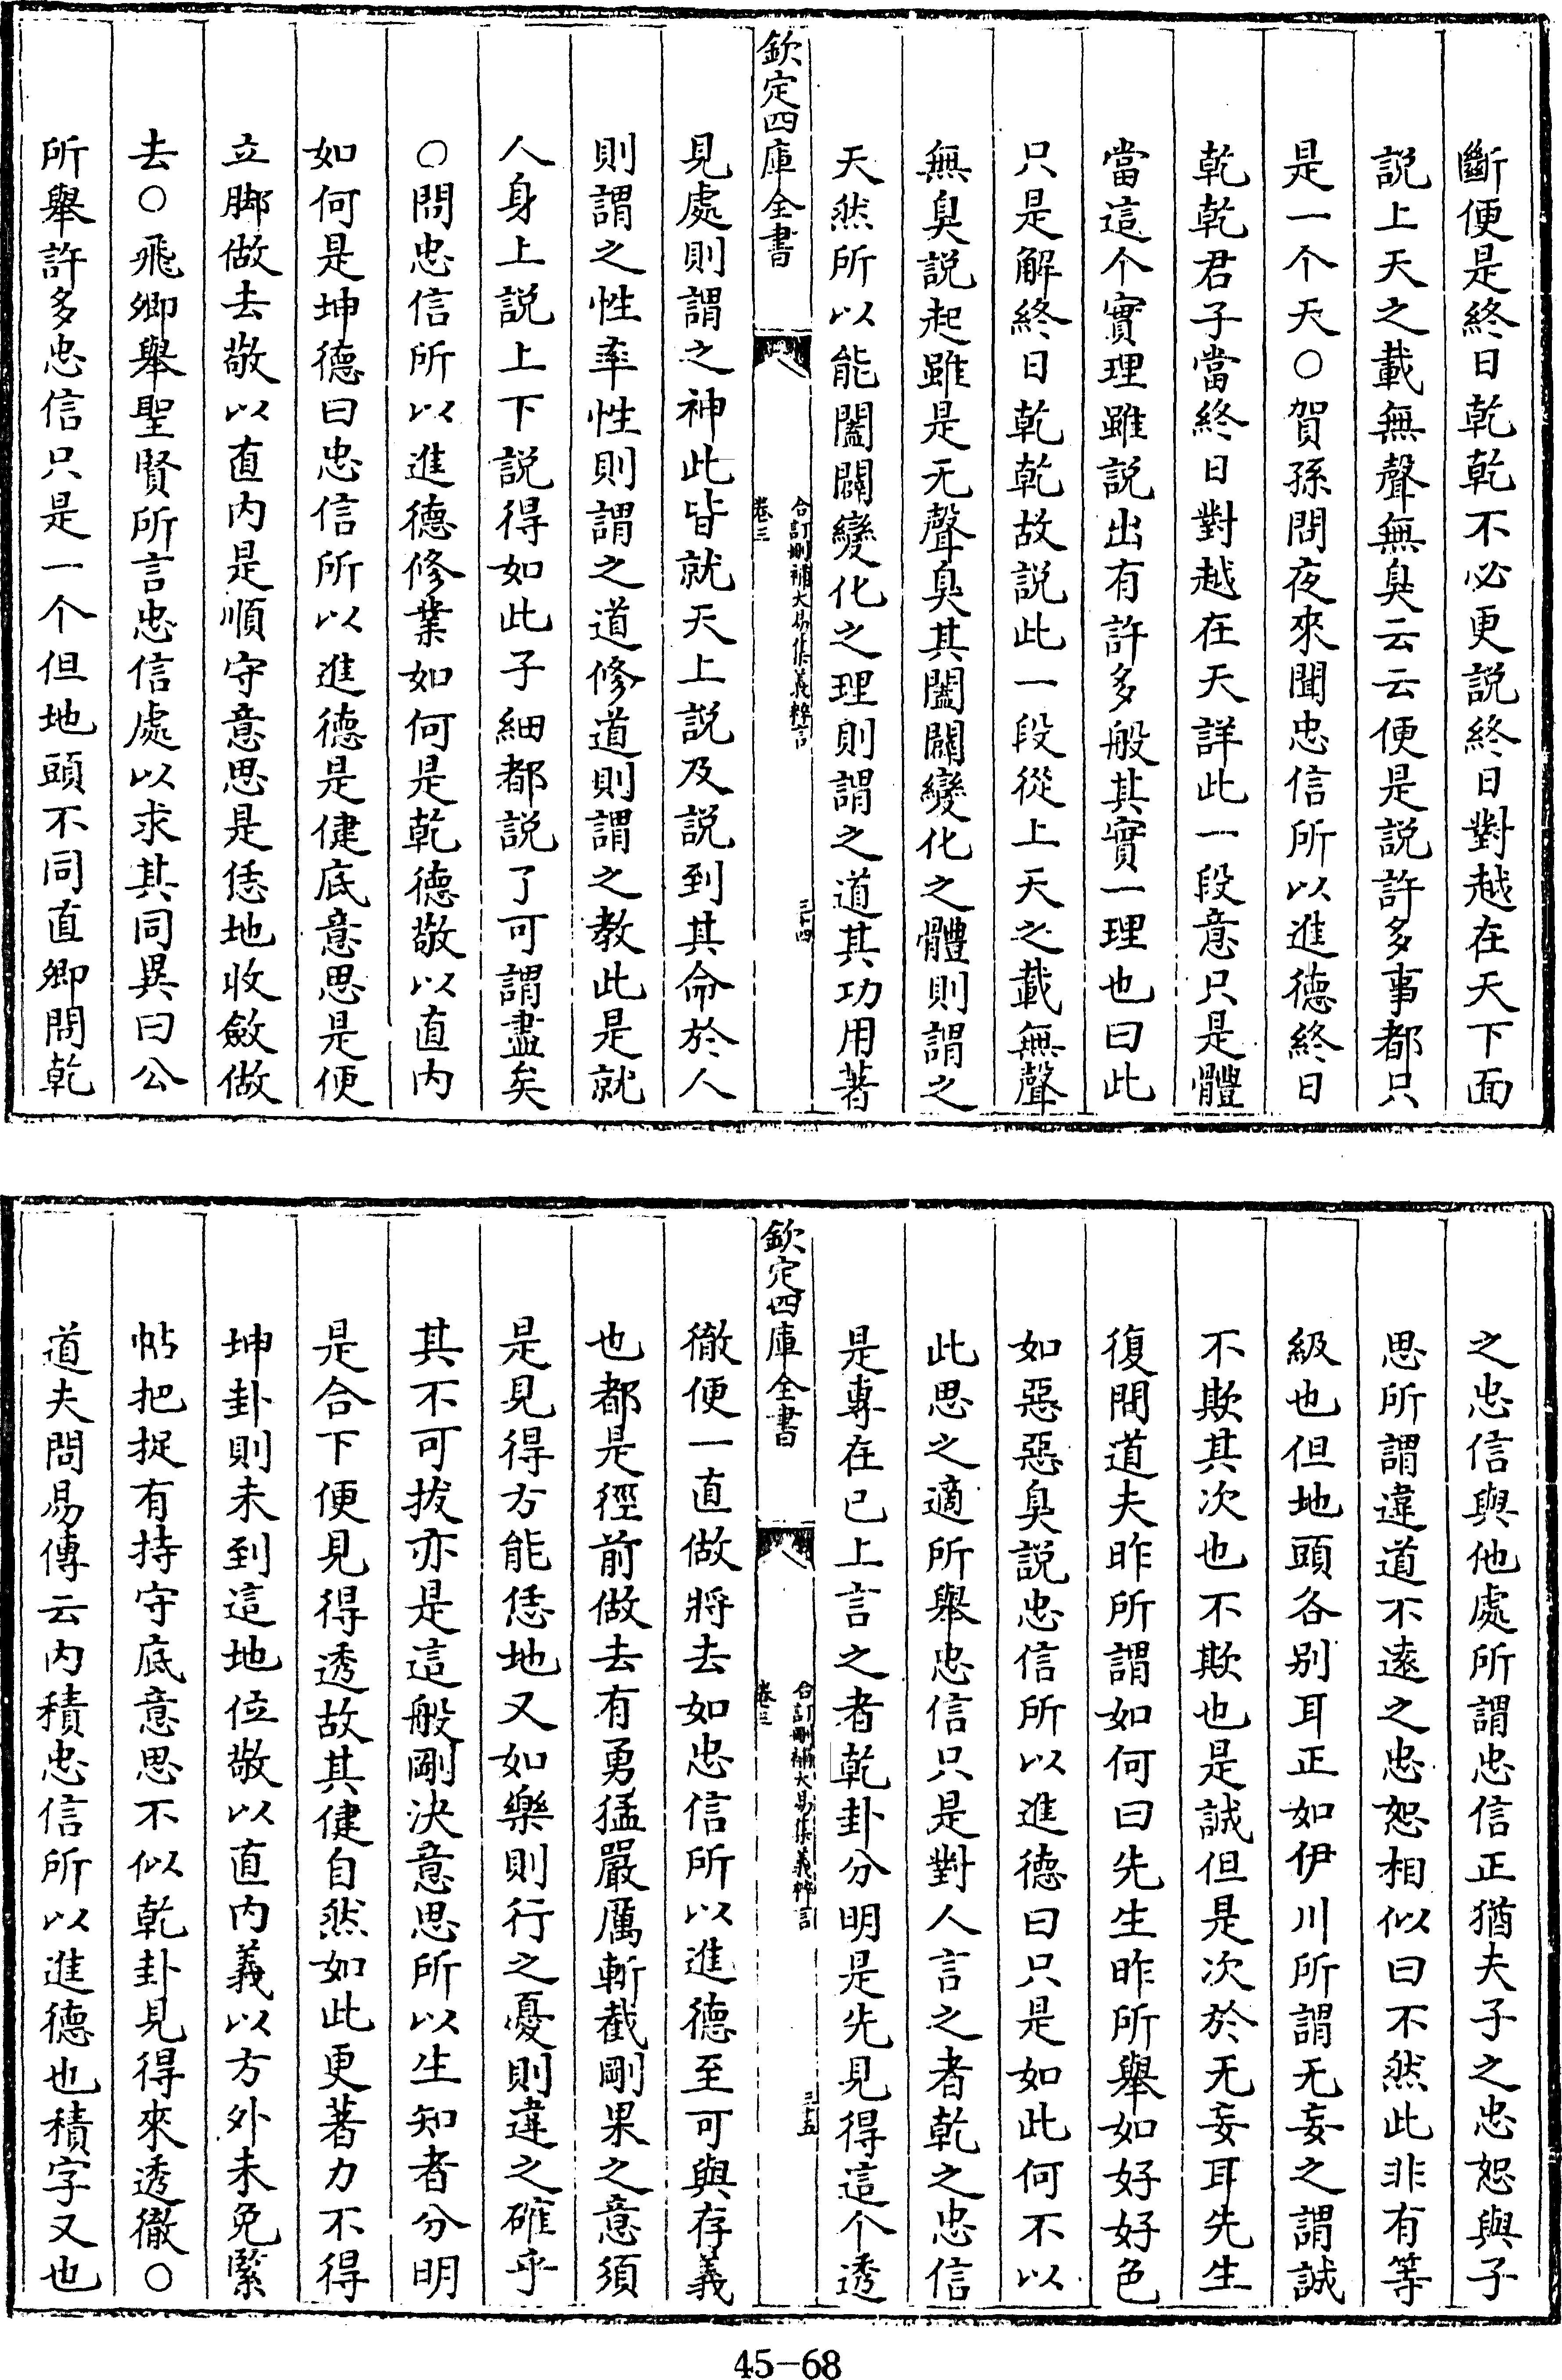 斷便是終日乾乾不必更説終日對越在天下面
説上天之載無聲無臭云云便是説許多事都只
是一个天○賀孫問夜來聞忠信所以進德終日
乾乾君子當終日對越在天詳此一段意只是體
當這个實理雖説出有許多般其實一理也曰此
只是解終日乾乾故説此一段從上天之載無聲
無臭説起雖是无聲臭其闔闢變化之體則謂之
天然所以能闔闢變化之理則謂之道其功用著
欽定四庫全書
合訂刪補大易集義粹言
卷三
三十四
見處則謂之神此皆就天上説及説到其命於人
則謂之性率性則謂之道修道則謂之教此是就
人身上説上下説得如此子細都説了可謂盡矣
○問忠信所以進德修業如何是乾德敬以直内
如何是坤德曰忠信所以進德是健底意思是便
立脚做去敬以直内是順守意思是恁地收斂做
去○飛卿舉聖賢所言忠信處以求其同異曰公
所舉許多忠信只是一个但地頭不同直卿問乾
之忠信與他處所謂忠信正猶夫子之忠恕與子
思所謂違道不遠之忠恕相似曰不然此非有等
級也但地頭各别耳正如伊川所謂无妄之謂誠
不欺其次也不欺也是誠但是次於无妄耳先生
復問道夫昨所謂如何曰先生昨所舉如好好色
如惡惡臭説忠信所以進德曰只是如此何不以
此思之適所舉忠信只是對人言之者乾之忠信
是專在已上言之者乾卦分明是先見得這个透
欽定四庫全書
合訂刪補大易集義粹言
卷三
三十五
徹便一直做將去如忠信所以進德至可與存義
也都是徑前做去有勇猛嚴厲斬截剛果之意須
是見得方能恁地又如樂則行之憂則違之確乎
其不可拔亦是這般剛決意思所以生知者分明
是合下便見得透故其健自然如此更著力不得
坤卦則未到這地位敬以直内義以方外未免緊
帖把捉有持守底意思不似乾卦見得來透徹○
道夫問易傳云内積忠信所以進德也積字又也
45-68